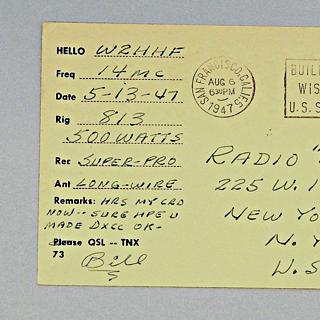 HELLO W2HHF
Freq 14 MC
Date 5-13-47
Rig 813
500 WATTS
Rec SUPER-PRO
Ant LONG-WIRE
Remarks: HRS MY CRD
NOW -- SURE HPE U
MADE DXCC OK-
Please QSL -- TNX
73 Bill
SAN FRANCISCO, CALIF.
AUG 6
630PM
1947
BUIL
WIS
U.S.S
RADIO "
225 W. 1
NEW YO
N. Y
U.S